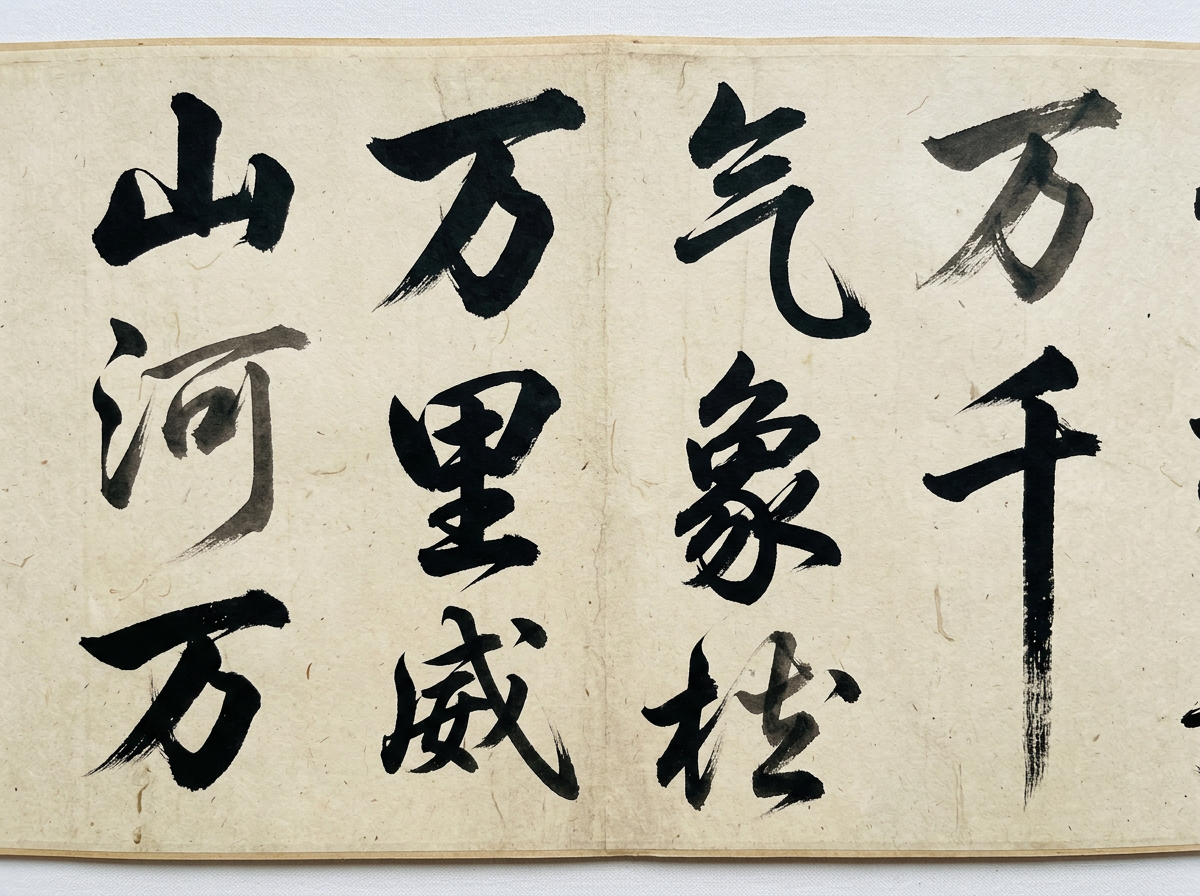 山河万
万里威
气象
万千